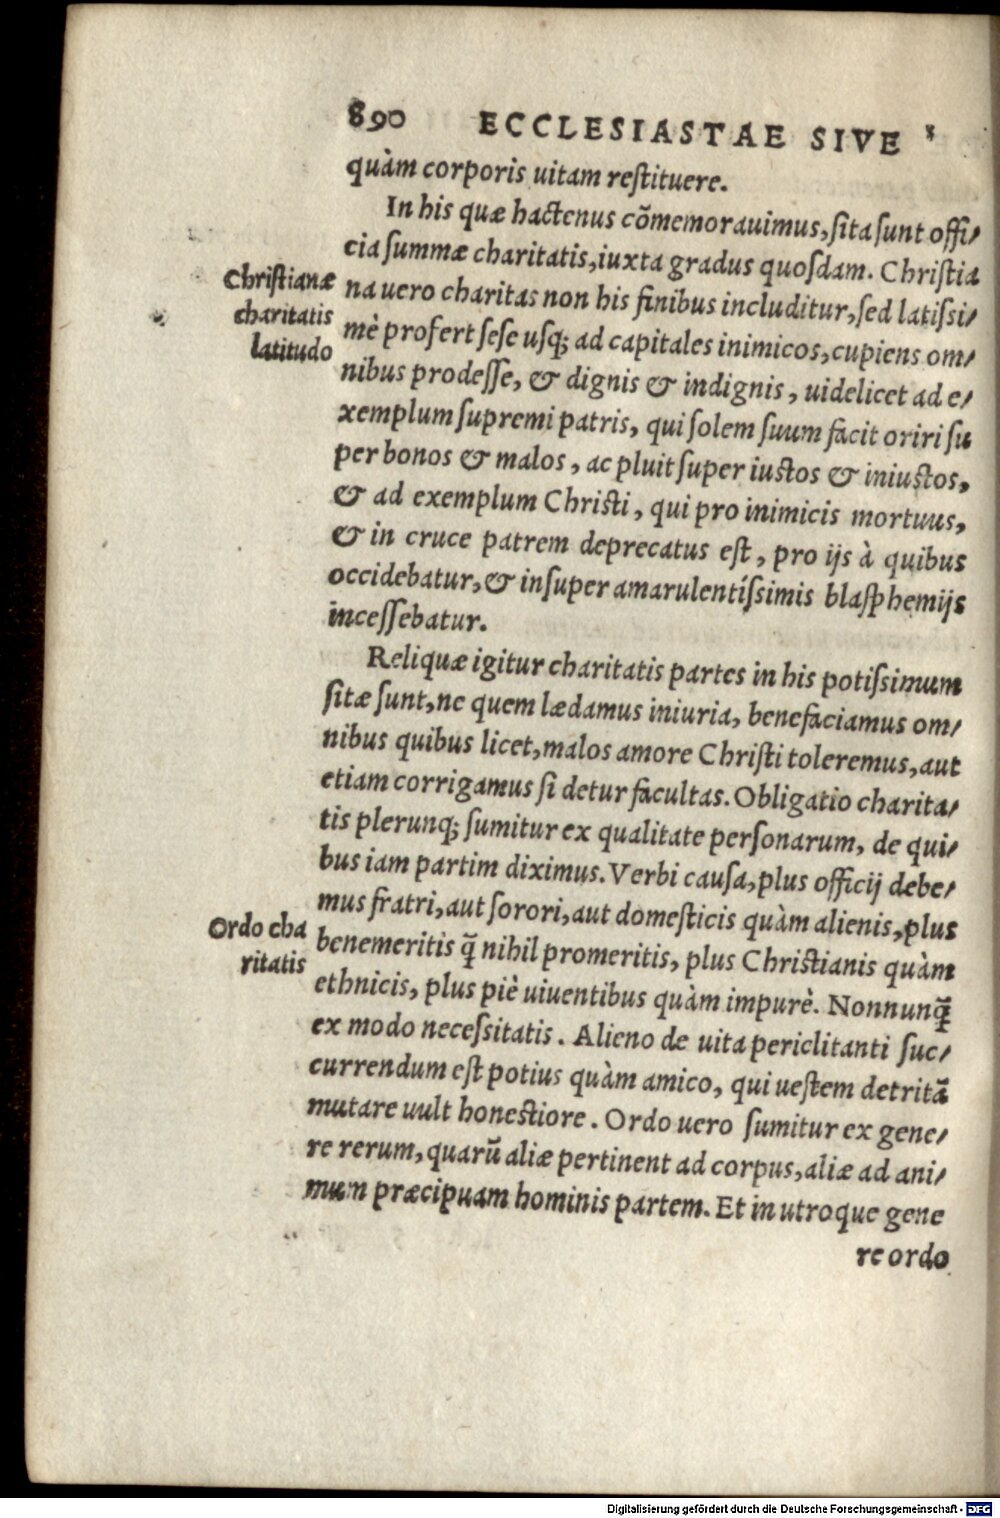 890 ECCLESIASTAE SIVE
quàm corporis uitam reſtituere.
In his quæ hactenus cõmemorauimus, ſita ſunt offi/
cia ſummæ charitatis, iuxta gradus quoſdam. Chriſtia
Chriſtianæ
charitatis
latitudo
na uero charitas non his finibus includitur, ſed latiſsi/
mè profert ſeſe uſq; ad capitales inimicos, cupiens om/
nibus prodeſſe, & dignis & indignis, uidelicet ad e/
xemplum ſupremi patris, qui ſolem ſuum facit oriri ſu
per bonos & malos, ac pluit ſuper iuſtos & iniuſtos,
& ad exemplum Chriſti, qui pro inimicis mortuus,
& in cruce patrem deprecatus eſt, pro ijs à quibus
occidebatur, & inſuper amarulentíſsimis blaſphemijs
inceſſebatur.
Reliquæ igitur charitatis partes in his potiſsimum
ſitæ ſunt, ne quem lædamus iniuria, benefaciamus om/
nibus quibus licet, malos amore Chriſti toleremus, aut
etiam corrigamus ſi detur facultas. Obligatio charita/
tis plerunq; ſumitur ex qualitate perſonarum, de qui/
bus iam partim diximus. Verbi cauſa, plus officij debe/
mus fratri, aut ſorori, aut domeſticis quàm alienis, plus
Ordo cha
ritatis
benemeritis q̃ nihil promeritis, plus Chriſtianis quàm
ethnicis, plus piè uiuentibus quàm impurè. Nonnunq̃
ex modo neceſsitatis. Alieno de uita periclitanti ſuc/
currendum eſt potius quàm amico, qui ueſtem detritã
mutare uult honeſtiore. Ordo uero ſumitur ex gene/
re rerum, quarũ aliæ pertinent ad corpus, aliæ ad ani/
mum præcipuam hominis partem. Et in utroque gene
re ordo
Digitalisierung gefördert durch die Deutsche Forschungsgemeinschaft - DFG